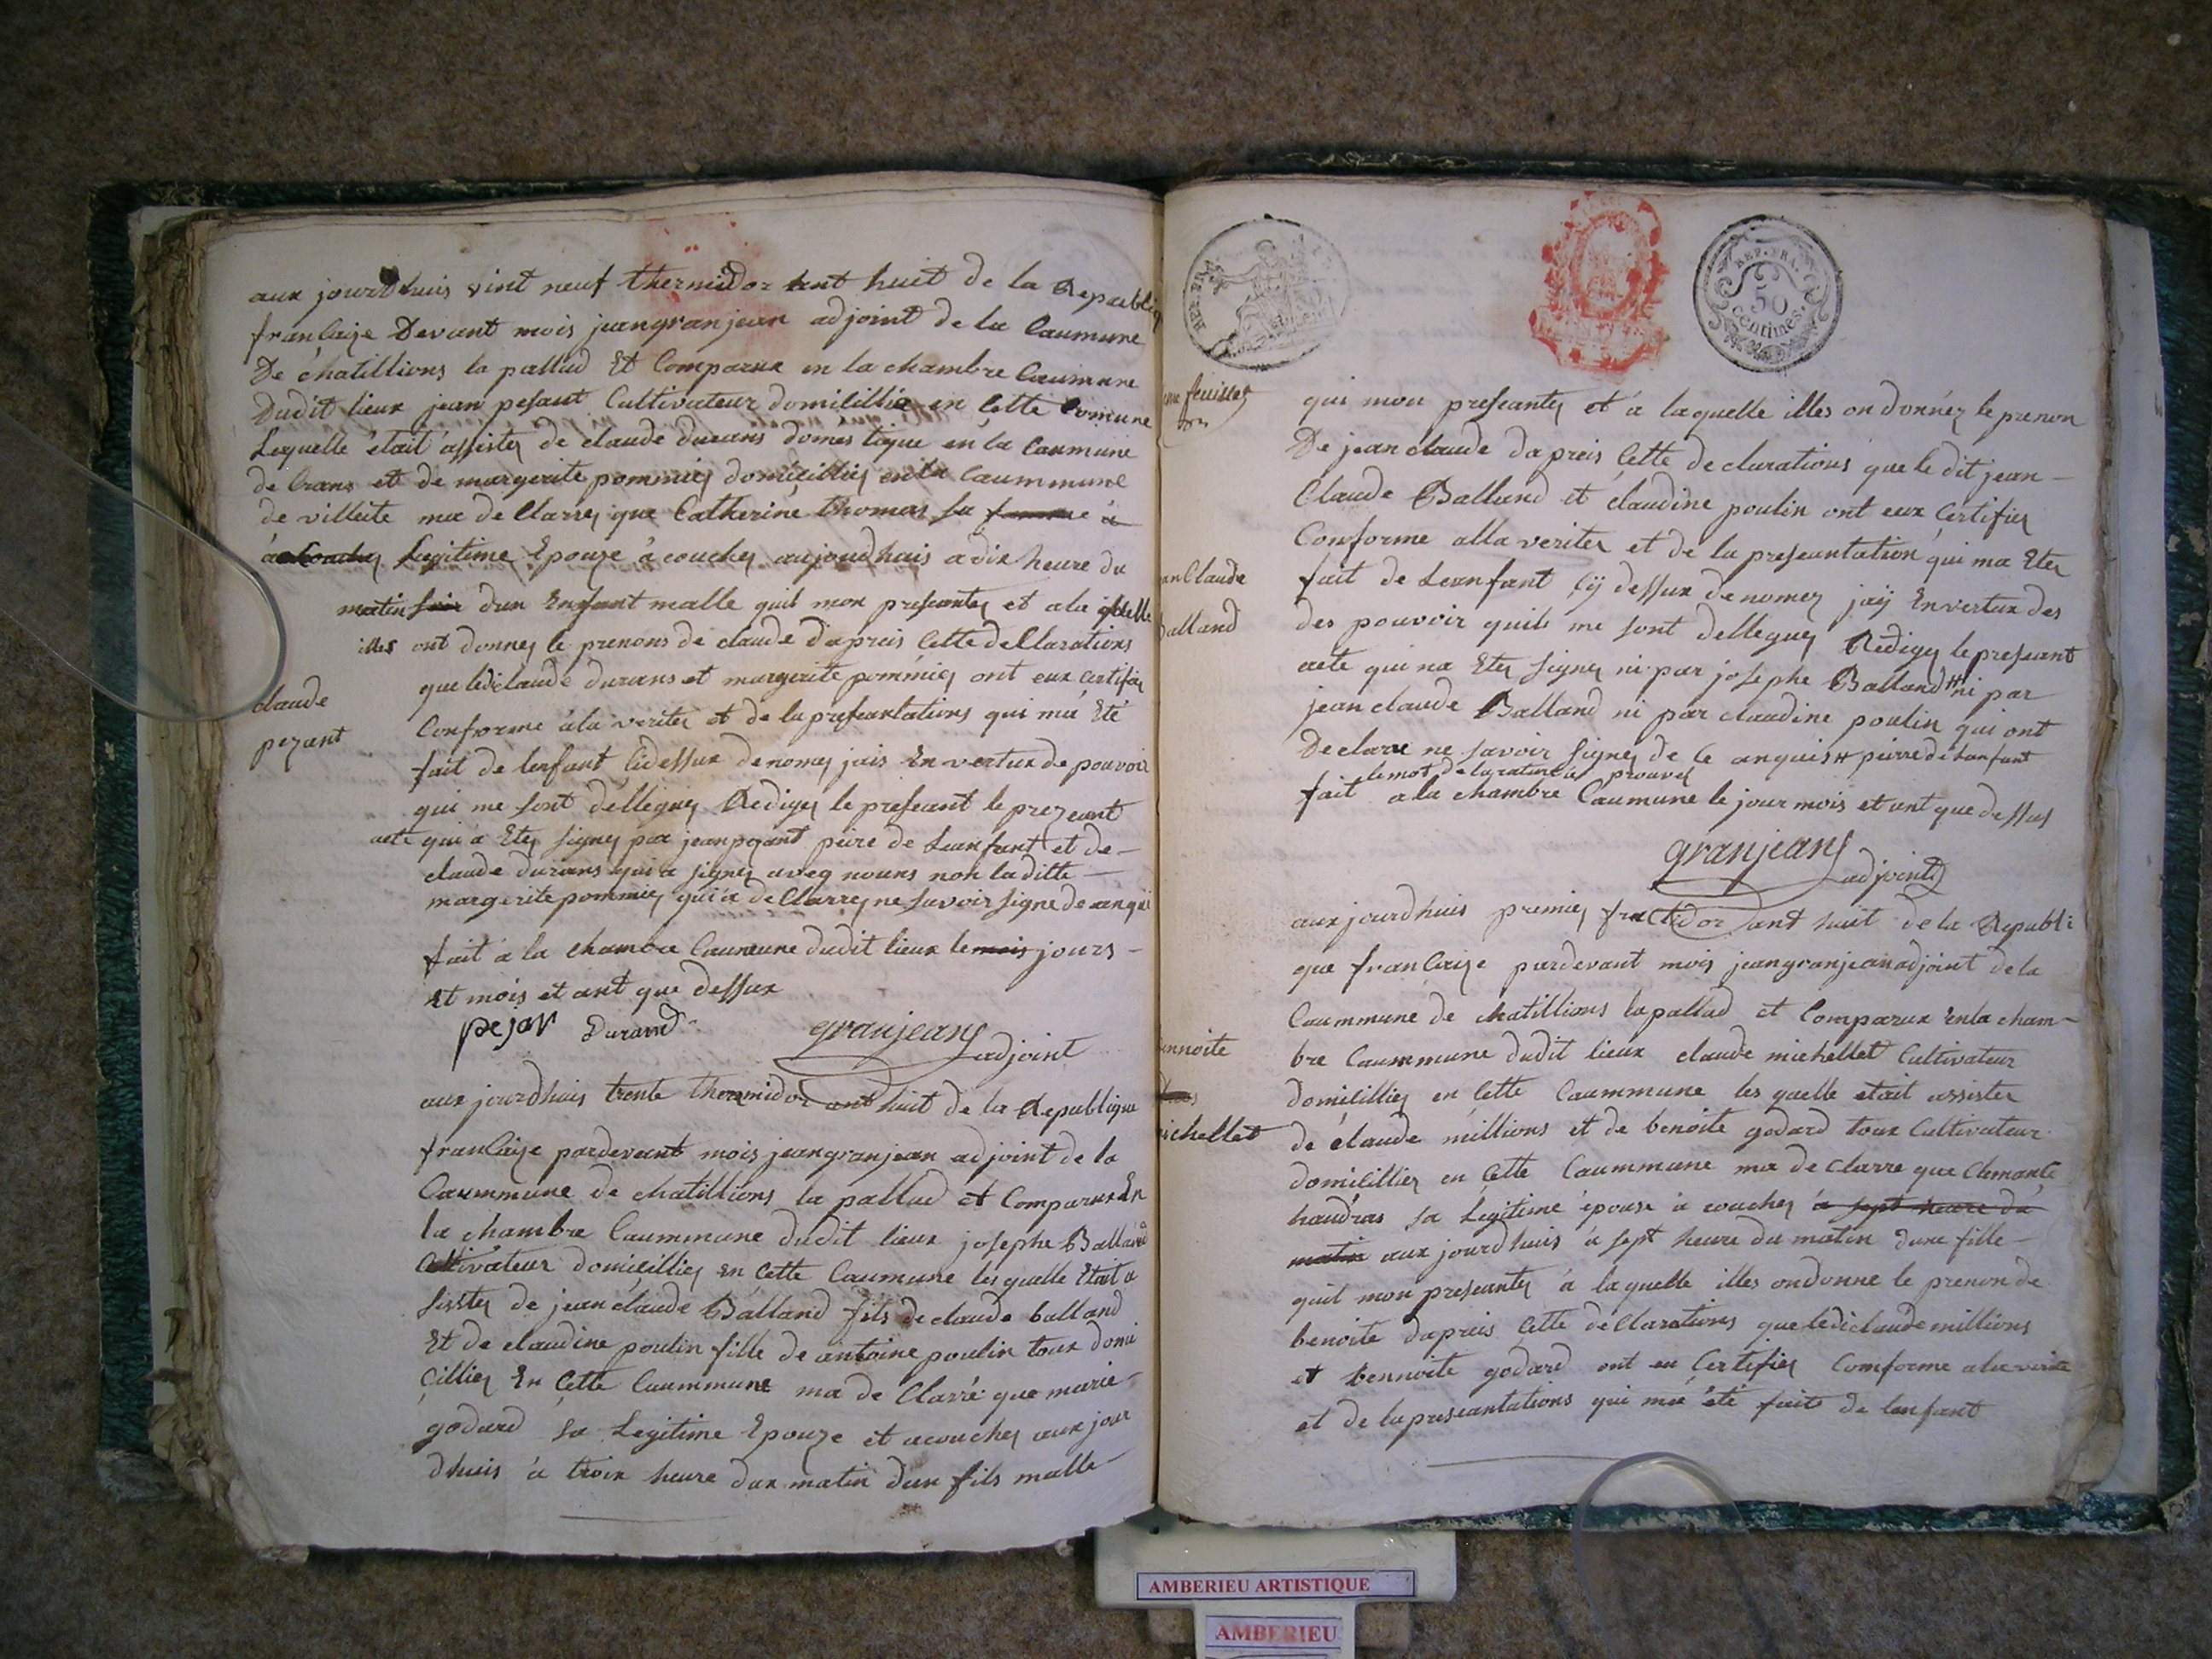 aux jourdhuis vint neuf thermidor ant huit de la Republiq
francaize Devant mois jeangranjean adjoint de la Caumune
De chatillions la pallud Et Comparux en la chambre Caumune
Dudit lieux jean pesant Cultivateur domicillie en Cette Comune
Lequelle était assistez de claude durans domestique en la Caumune
de Crans et de margerite pommiez domicilliez en la Caummune
de villeite ma de Clarrez que Catherine thomas sa femme à
à Legitime Epouze à couchez aujourdhuis a dix heure du
matin soir dun Enfant malle quil mon presantez et a la quelle
illes ont donnez le prenons de claude dapreis Cette de Clarations
claude
pezant
que ledi claude durans et margerite pommiez ont eux certifiez
Conforme à la veritez et de la preseantations qui ma Eté
fait de lenfant Cidessux denomez jais En vertux de pouvoir
qui me sont delleguez Redigez le preseant le prezeant
acte qui a Etez signez par jean pezant peire de Leanfant et de
claude durans qui a signez aveq nouns non laditte
margerite pommiez qui a de Clarrez ne savoir signe de ce anqui
fait a la chambre Caumune dudit lieux le mois jours
Et mois et ant que dessux
pejan Durand granjeans adjoint
aux jourdhuis trente thermidor ant huit de la Republique
francaize pardevant mois jeangranjean adjoint de la
Caummune de chatillions la pallud et Comparux En
la chambre Caummune dudit lieux josephe Balland
Cultivateur domicilliez en Cette Caumune lesquelle Etait a
sisstez de jean claude Balland fils de claude balland
Et de claudine poulin fille de antoine poulin toux domi
cilliez En Cette Caummune ma de Clarré que marie
godard sa Legitime Epouze et acouchez aux jour
dhuis à troix heure dux matin dun fils malle
REP. FRA.
50
centimes.
feuillet
qui mon preseantez et à laquelle illes on donnéz le prenon
De jean claude dapreis Cette declarations que le dit jean
Claude Balland et claudine poulin ont eux Certifiez
Conforme alla veritez et de la preseantation qui ma Etez
anClaude
balland
fait de Leanfant Cÿ dessux denomez jaÿ Envertux des
des pouvoir quils me sont delleguez Redigez le preseant
acte qui na Etez signez ni par josephe Balland ni par
jean claude Balland ni par claudine poulin qui ont
Declare ne savoir signez de Ce anquis pierre de Leanfant
le mot de la rature a prouvez
fait a la chambre Caumune le jour mois et ant que dessus
granjeans adjoint
aux jourdhuis premiez fructidor ant huit de la Republi
que francaize pardevant mois jeangranjean adjoint de la
Caummune de chatillions la pallud et Comparux en la cham
ennoite
michellet
bre Caummune dudit lieux claude michellet Cultivateur
domicilliez en Cette Caummune les quelle etait assistez
de claude millions et de benoite godard toux Cultivateur
domicilliez en Cette Caummune ma de Clarre que Clemante
haudras sa Légitime épouse à couchez à sept heure du
matin aux jourdhuis à sept heure du matin dune fille
quil mon preseantez à laquelle illes on donne le prenon de
benoite dapreis Cette de Clarations que ledi claude millions
et bennoite godard ont eu Certifiez Comforme a la verite
et de la preseantations qui ma été faite de lenfant
AMBERIEU ARTISTIQUE
AMBERIEU